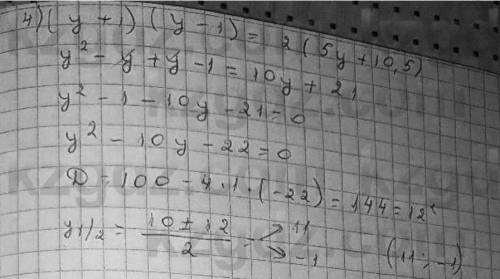 4) (y + 1) (y - 1) = 2 (5y + 10,5)
y² - y + y - 1 = 10y + 21
y² - 1 - 10y - 21 = 0
y² - 10y - 22 = 0
D = 100 - 4 · 1 · (-22) = 144 = 12²
y1/2 = (10 ± 12)/2 = 11 -1 (11; -1)